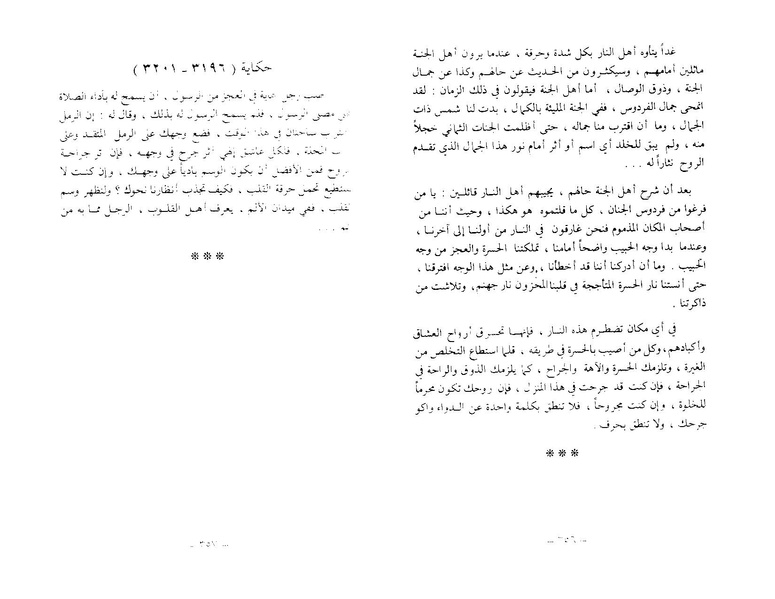 غداً يتأوه أهل النار بكل شدة وحرقة ، عندما يرون أهل الجنة
ماثلين أمامهم ، وسيكثرون من الحديث عن حالهم وكذا عن جمال
الجنة ، وذوق الوصال ، أما أهل الجنة فيقولون في ذلك الزمان : لقد
انمحى جمال الفردوس ، ففي الجنة المليئة بالكمال ، بدت لنا شمس ذات
الجمال ، وما أن اقترب منا جماله ، حتى أظلمت الجنات الثماني خجلاً
منه ، ولم يبق للخلد أي اسم أو أثر أمام نور هذا الجمال الذي تقدم
الروح نثاراً له . . .
بعد أن شرح أهل الجنة حالهم ، يجيبهم أهل النار قائلين : يا من
فرغوا من فردوس الجنان ، كل ما قلتموه هو هكذا ، وحيث أننا من
أصحاب المكان المذموم فنحن غارقون في النار من أولنا إلى آخرنا ،
وعندما بدا وجه الحبيب واضحاً أمامنا ، تملكتنا الحسرة والعجز من وجه
الحبيب . وما أن أدركنا أننا قد أخطأنا ، وعن مثل هذا الوجه افترقنا ،
حتى أنستنا نار الحسرة المتأججة في قلبنا المحزون نار جهنم، وتلاشت من
ذاكرتنا .
في أي مكان تضطرم هذه النار ، فإنهـا تحـرق أرواح العشـاق
وأكبادهم، وكل من أصيب بالحسرة في طريقه ، قلما استطاع التخلص من
الغيرة ، وتلزمك الحسرة والآهة والجراح ، كما يلزمك الذوق والراحة في
الجراحة ، فإن كنت قد جرحت في هذا المنزل ، فإن روحك تكون محرماً
للخلوة ، وإن كنت مجروحاً ، فلا تنطق بكلمة واحدة عن الدواء واكو
جرحك ، ولا تنطق بحرف .
※ ※ ※
— ٣٥٦ —
حكاية ( ٣١٩٦ - ٣٢٠١ )
طلب رجل غاية في العجز من الرسول ، أن يسمح له بأداء الصلاة
مصلى الرسول ، فلم يسمح الرسول له بذلك ، وقال له : إن الرمل
ساخنان في هذا الوقت ، فضع وجهك على الرمل المتقد وعلى
فلكل عاشق إلهي أثر جرح في وجهـه ، فإن تر جراحة
فمن الأفضل أن يكون الوسم بادياً على وجهـك ، وإن كنت لا
تستطيع تحمل حرقة القلب ، فكيف تجذب أنظارنا نحوك ؟ ولتظهر وسم
القلب ، ففي ميدان الألم ، يعرف أهـل القلـوب ، الرجل ممـا به من
. . .
※ ※ ※
— ٣٥٧ —